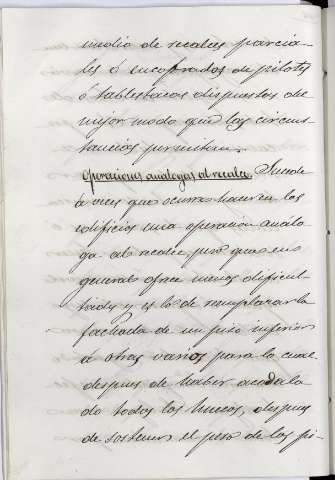 medio de recalces parcia-
les ó encofrados de pilotes
ó tablestacas dispuestos del
mejor modo que las circuns-
tancias permitan.
Operaciones analogas al recalce. Sucede
á veces que ocurre hacer en los
edificios una operacion análo-
ga al recalce, pero que en
general ofrece menos dificul-
tades y es la de remplazar la
fachada de un piso inferior
á otros varios para lo cual
despues de haber acodala
do todos los huecos, despues
de sostener el peso de los pi-